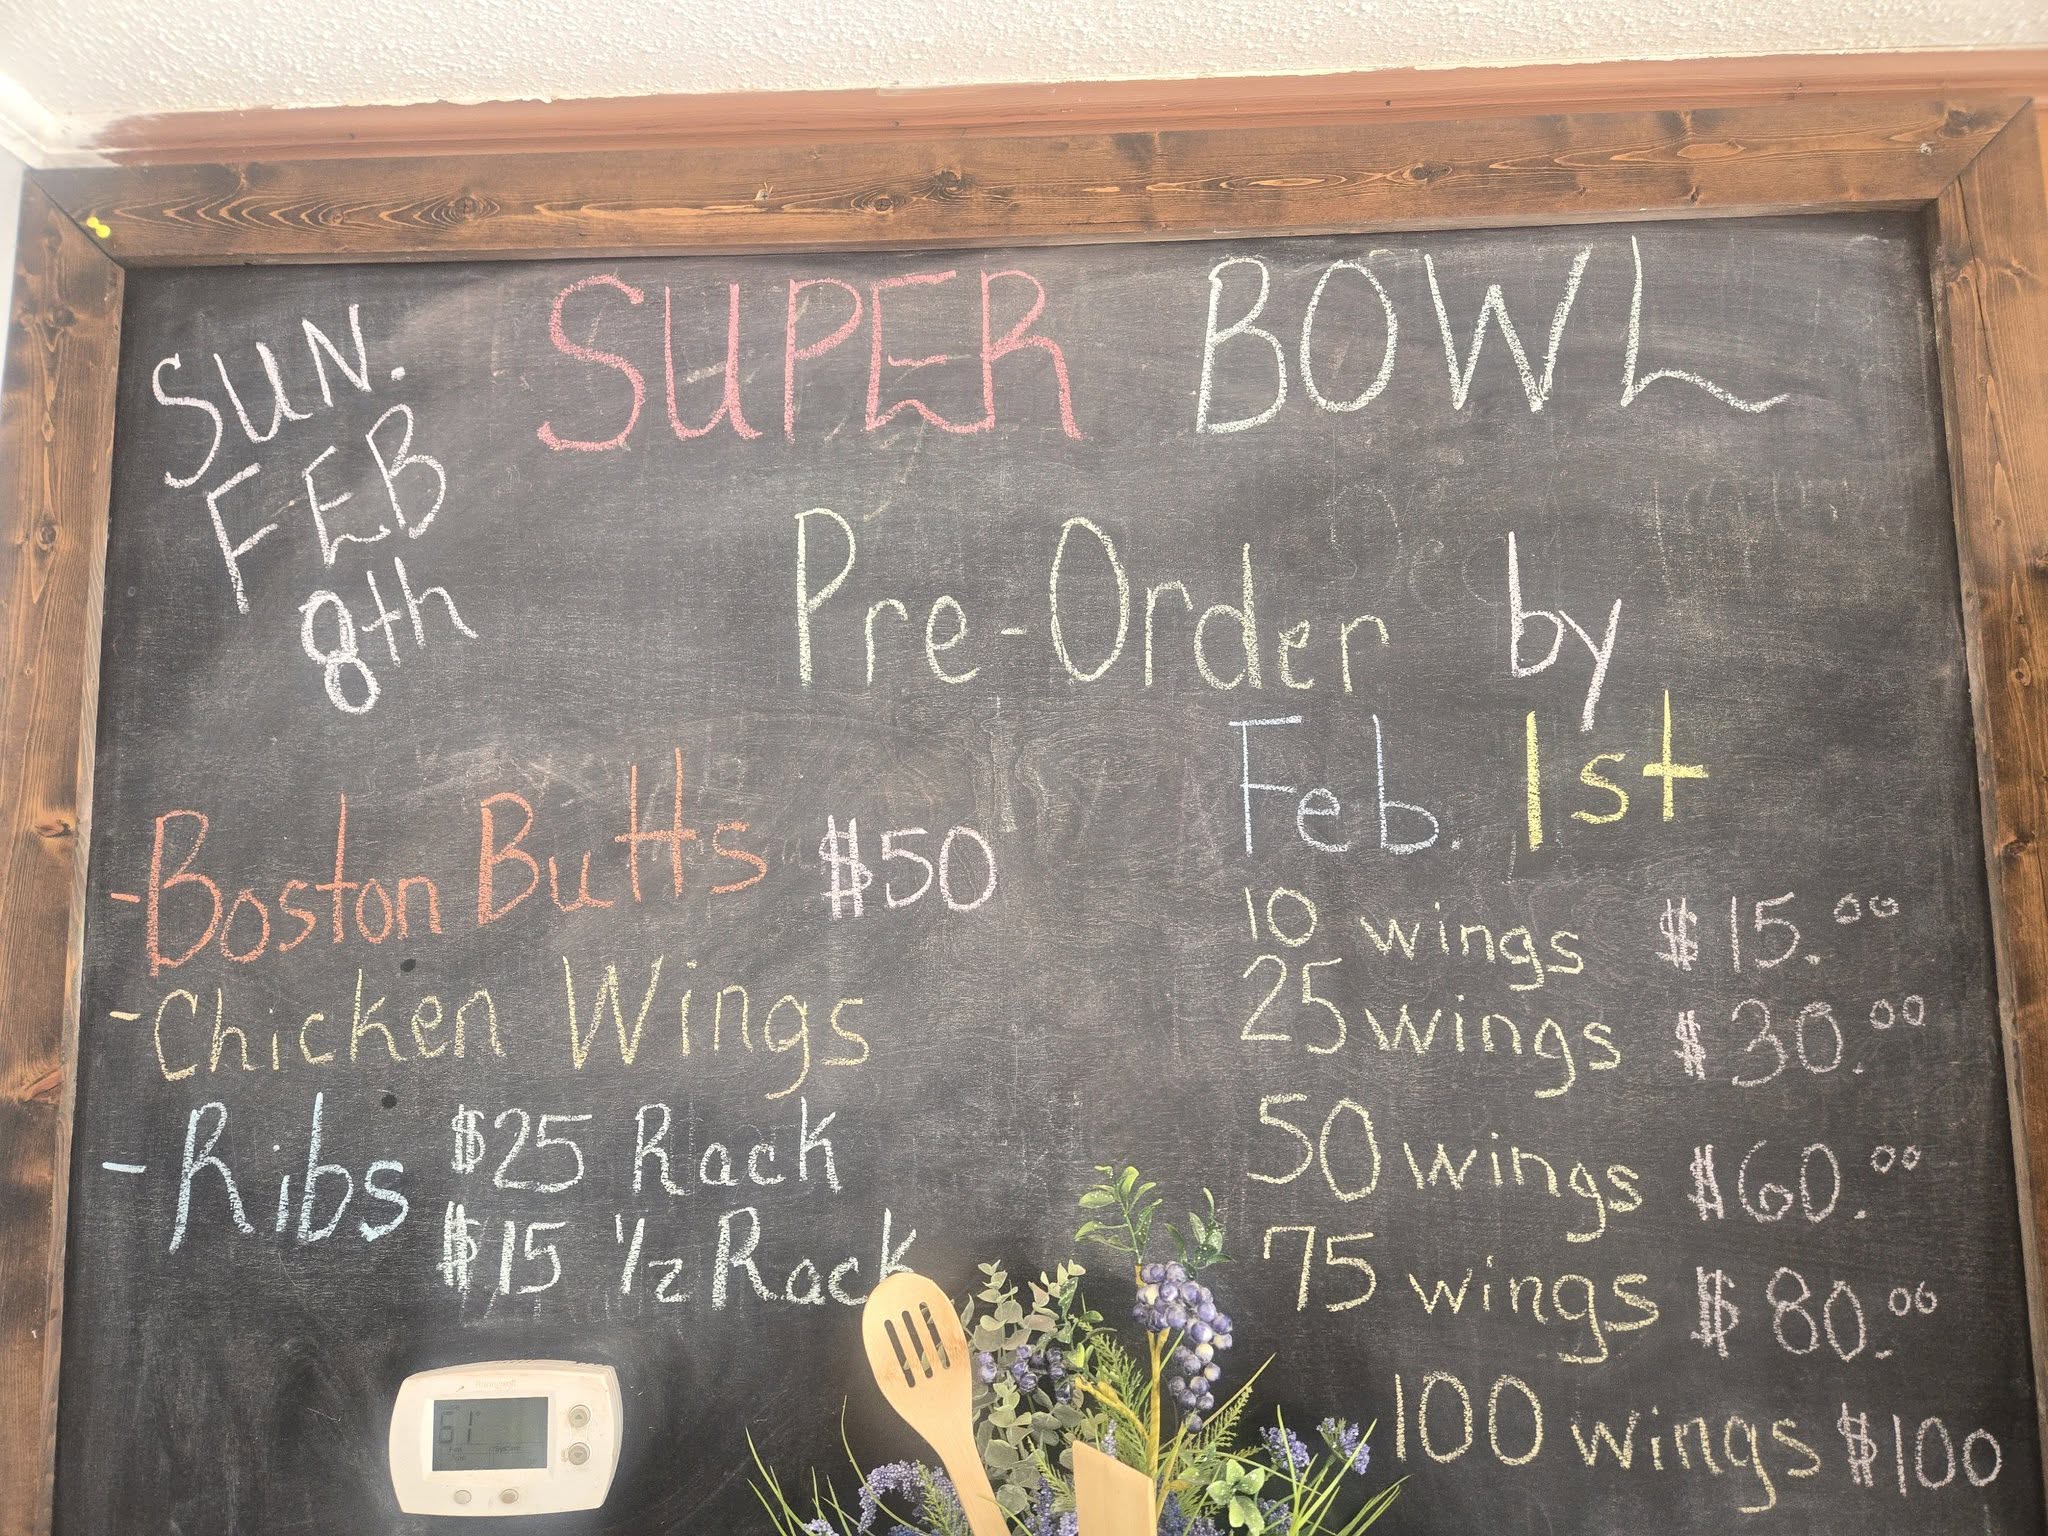 SUPER BOWL
SUN.
FEB
8th
Pre-Order by
Feb. 1st
-Boston Butts $50
-Chicken Wings
-Ribs $25 Rack
$15 1/2 Rack
10 wings $15.00
25 wings $30.00
50 wings $60.00
75 wings $80.00
100 wings $100
Honeywell
61°